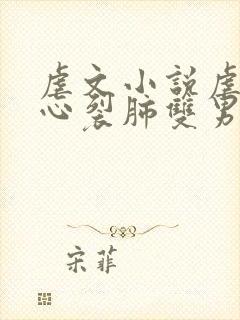 虐文小说虐
心裂肺雙男
宋菲